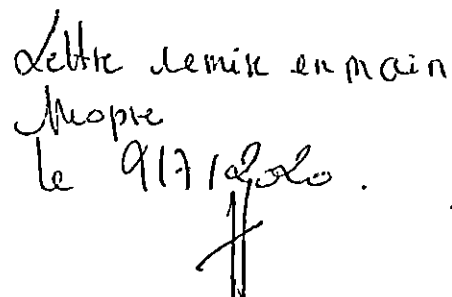 Lettre remise en main
propre
le 9/7/2020.